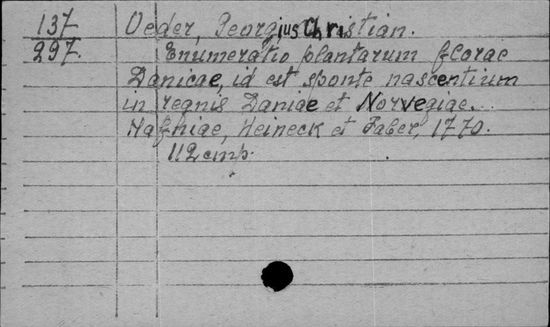 137 Oeder, Georgius Christian.
297. Enumeratio plantarum florae
Danicae, id est sponte nascentium
in regnis Daniae et Norvegiae.
Hafniae, Heineck et Faber, 1770.
112 стр.